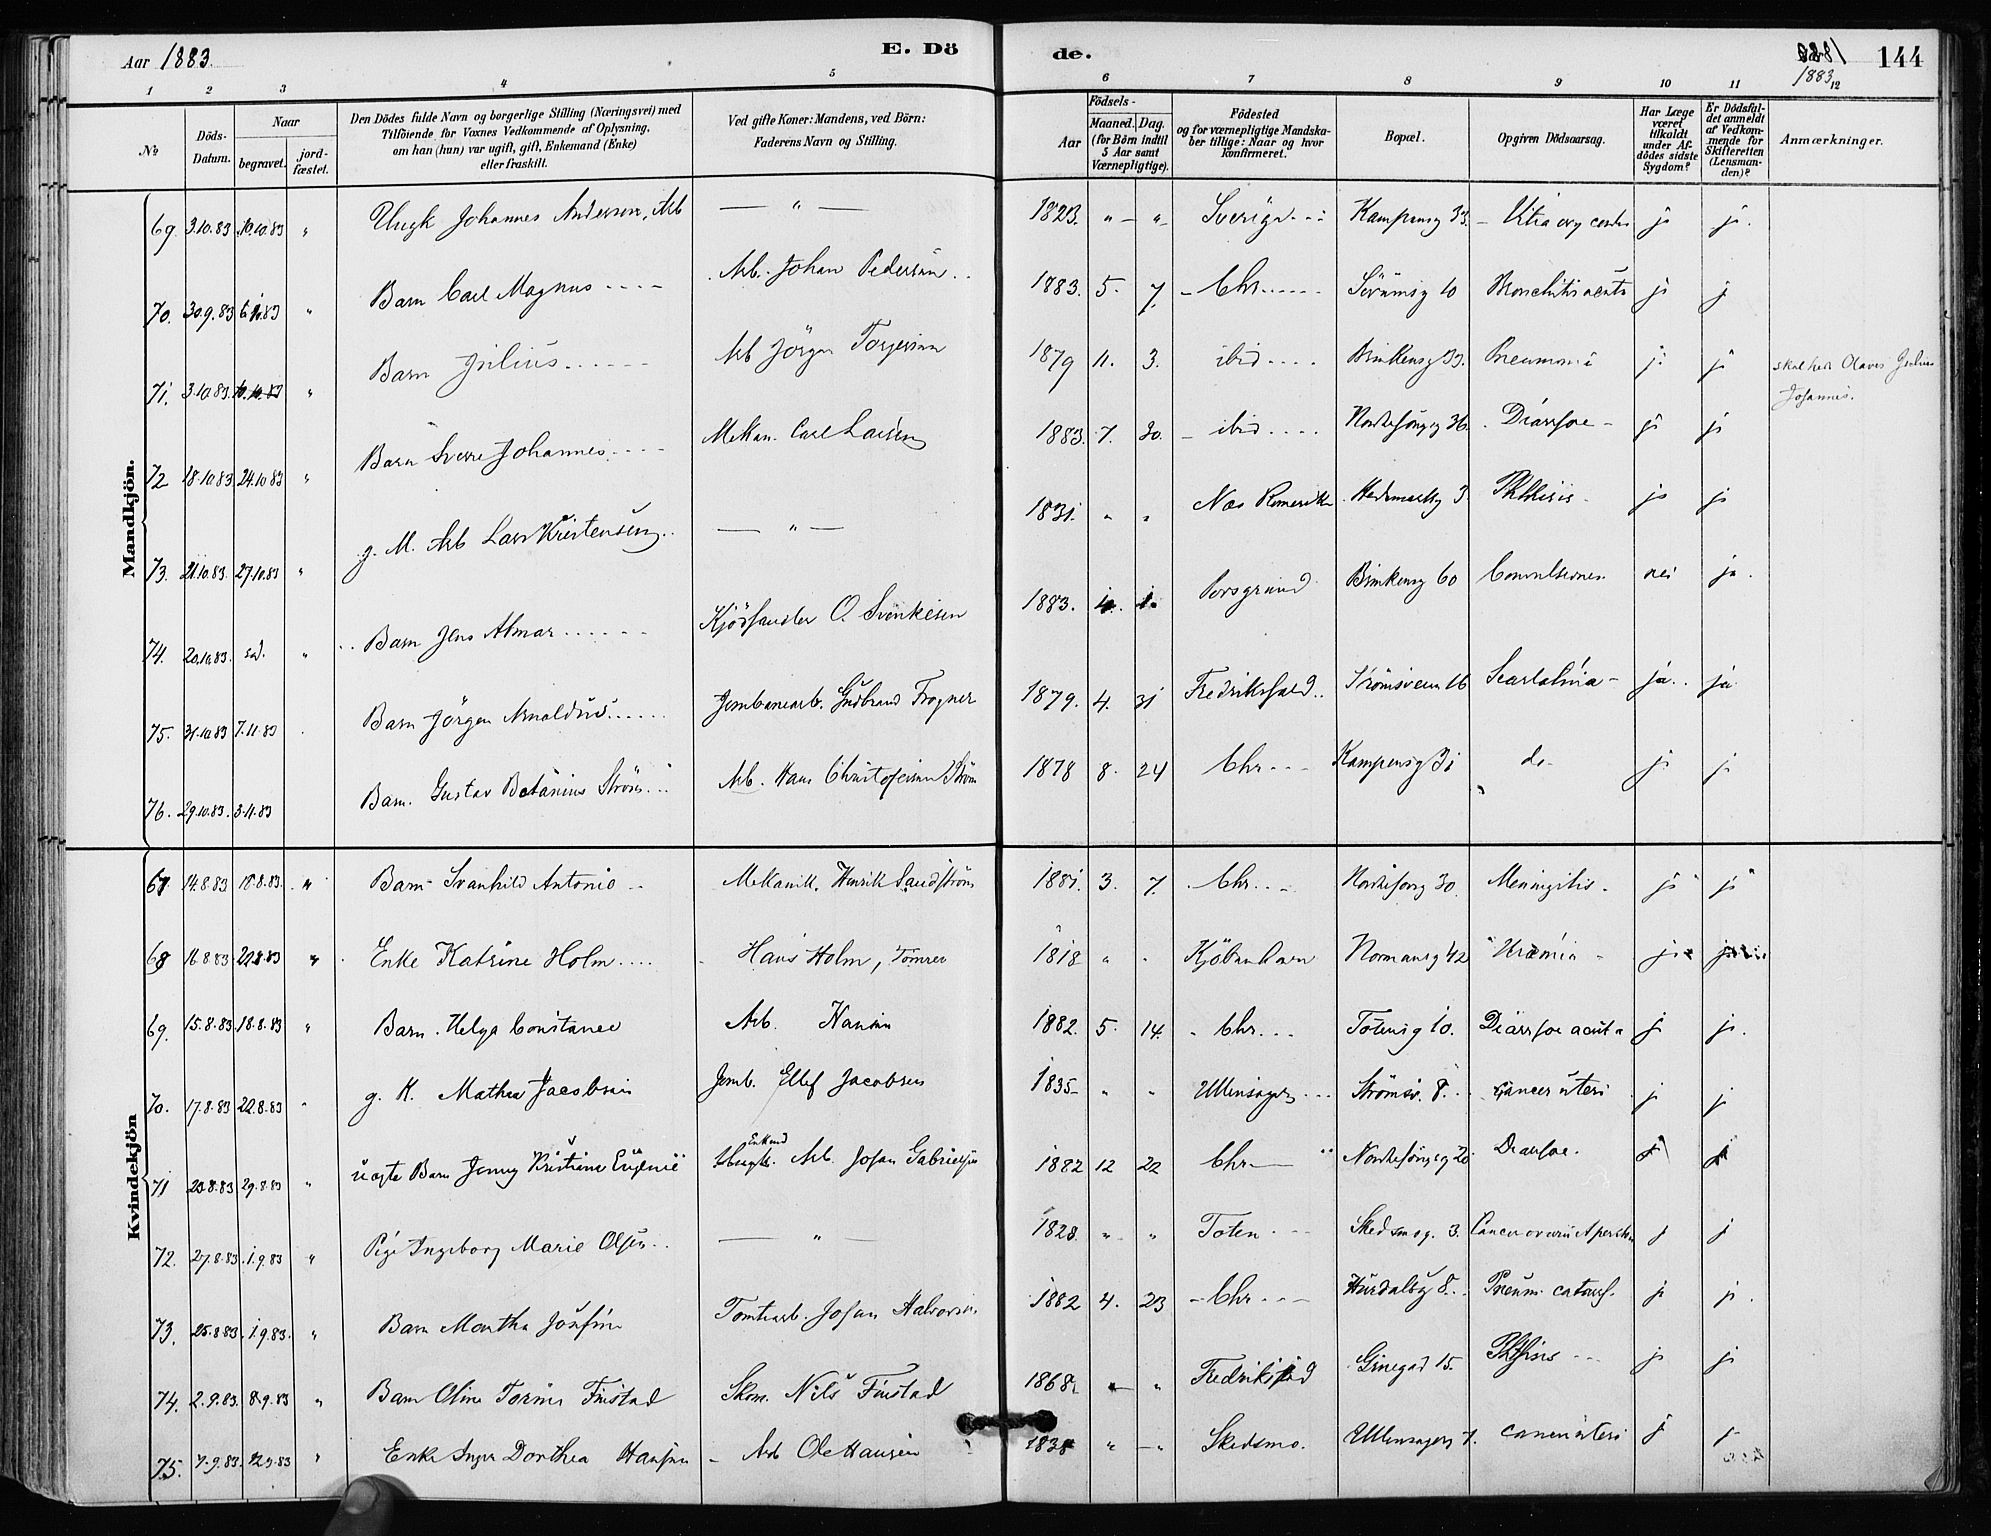 Aar 1883.
E. Dö
de.
1883
144
1 2 3 4 5 6 7 8 9 10 11 12
No
Döds-Datum.
Naar
begravet.
jord-fæstet.
Den Dödes fulde Navn og borgerlige Stilling (Næringsvei) med
Tilföiende for Voxnes Vedkommende af Oplysning,
om han (hun) var ugift, gift, Enkemand (Enke)
eller fraskilt.
Ved gifte Koner: Mandens, ved Börn:
Faderens Navn og Stilling.
Födsels-
Aar
Maaned. Dag.
(for Börn indtil
5 Aar samt
Værnepligtige).
Födested
og for værnepligtige Mandska-
ber tillige: Naar og hvor
konfirmeret.
Bopæl.
Opgiven Dödsaarsag.
Har Læge
været
tilkaldt
under Af-
dödes sidste
Sygdom?
Er Dödsfal-
det anmeldt
af Vedkom-
mende for
Skifteretten
(Lensman-
den)?
Anmærkninger.
Mandkjön.
69. 3.10.83 10.10.83 " Ungk Johannes Anderson, Arb — " — 1823. " — " Sverige Kampensg 33. Vitia org cordis ja ja.
70. 30.9.83 6.10.83 " Barn Carl Magnus Arb. Johan Pedersen 1883. 5. 7. Chr. Sörumsg 10 Bronchitis acuta ja ja
71. 3.10.83 10.10.83 " Barn Julius Arb Jörgen Torgersen 1879 11. 3. ibid Brinkensg 33. Pneumoni ja ja skal hede Olaves Julius
Johannes.
72 18.10.83 24.10.83 " Barn Sverre Johannes Mekan. Carl Larsen 1883. 7. 30. ibid Nordrehougsg 36. Diarrhoe ja ja
73. 21.10.83. 27.10.83 " g. M. Arb Lars Kristensen — " — 1831. " " Nes Romerike Hedemarksg 3 Phthisis ja ja
74. 20.10.83. " Barn Jens Almar Kjödhandler O. Svenkesen 1883. Porsgrund Brinkensg 60 Convulsiones nei ja.
75. 31.10.83 7.11.83 Barn Jörgen Arnoldus Jernbanearb. Gudbrand Frogner 1879. 4. 31 Fredrikshald Strömsveien 16 Scarlatina ja ja
76. 29.10.83. 3.11.83 Barn. Gustav Betanius Ström Arb. Hans Christofersen Ström 1878 8. 24 Chr. Kampensg 31 do ja ja
Kvindekjön
67 14.8.83 18.8.83. " Barn Svanhild Antonie Mekanik. Henrik Sandström 1881. 3. 7. Chr. Nordrehoug 30. Meningitis ja ja
68 16.8.83 22.8.83 " Enke Katrine Holm Hans Holm, Tömrer 1818 " " Kjöbenhavn Normansg 42 Uræmia ja
69. 15.8.83. 18.8.83 " Barn. Helga Constance Arb. Hansen 1882. 5. 14. Chr. Totensg 10. Diarrhoe acuta ja ja.
70. 17.8.83 22.8.83 " g. K. Mathea Jacobsen Jernb. Ellef Jacobsen 1835 " " Ullensager Strömsv. 8. Cancer uteri ja ja
71 20.8.83 29.8.83 " uægte Barn Jenny Kristine Eugenie Enkemd Ungk. Arb. Johan Gabrielsen 1882 12 22 Chr. Nordrehougsg 20 Diarrhoe. ja ja
72. 27.8.83. 1.9.83 " Pige Ingeborg Marie Olsen — " — 1828. " " Toten Skedsmog. 3. Cancer ovarii ja ja
73. 25.8.83. 1.9.83. " Barn Martha Josefine Tomtearb. Johan Halvorsen 1882 4. 23 Chr. Hurdalsg 8. Pneum. catarrh. ja ja.
74. 2.9.83. 8.9.83 " Barn Oline Finstad Skom. Nils Finstad 1868. " Fredrikstad Ginegad 15. Phthisis ja ja
75. 7.9.83. 12.9.83 " Enke Inger Dorthea Hansen Arb Ole Hansen 1838 " " Skedsmo. Ullensagersg 7. cancer uteri ja ja